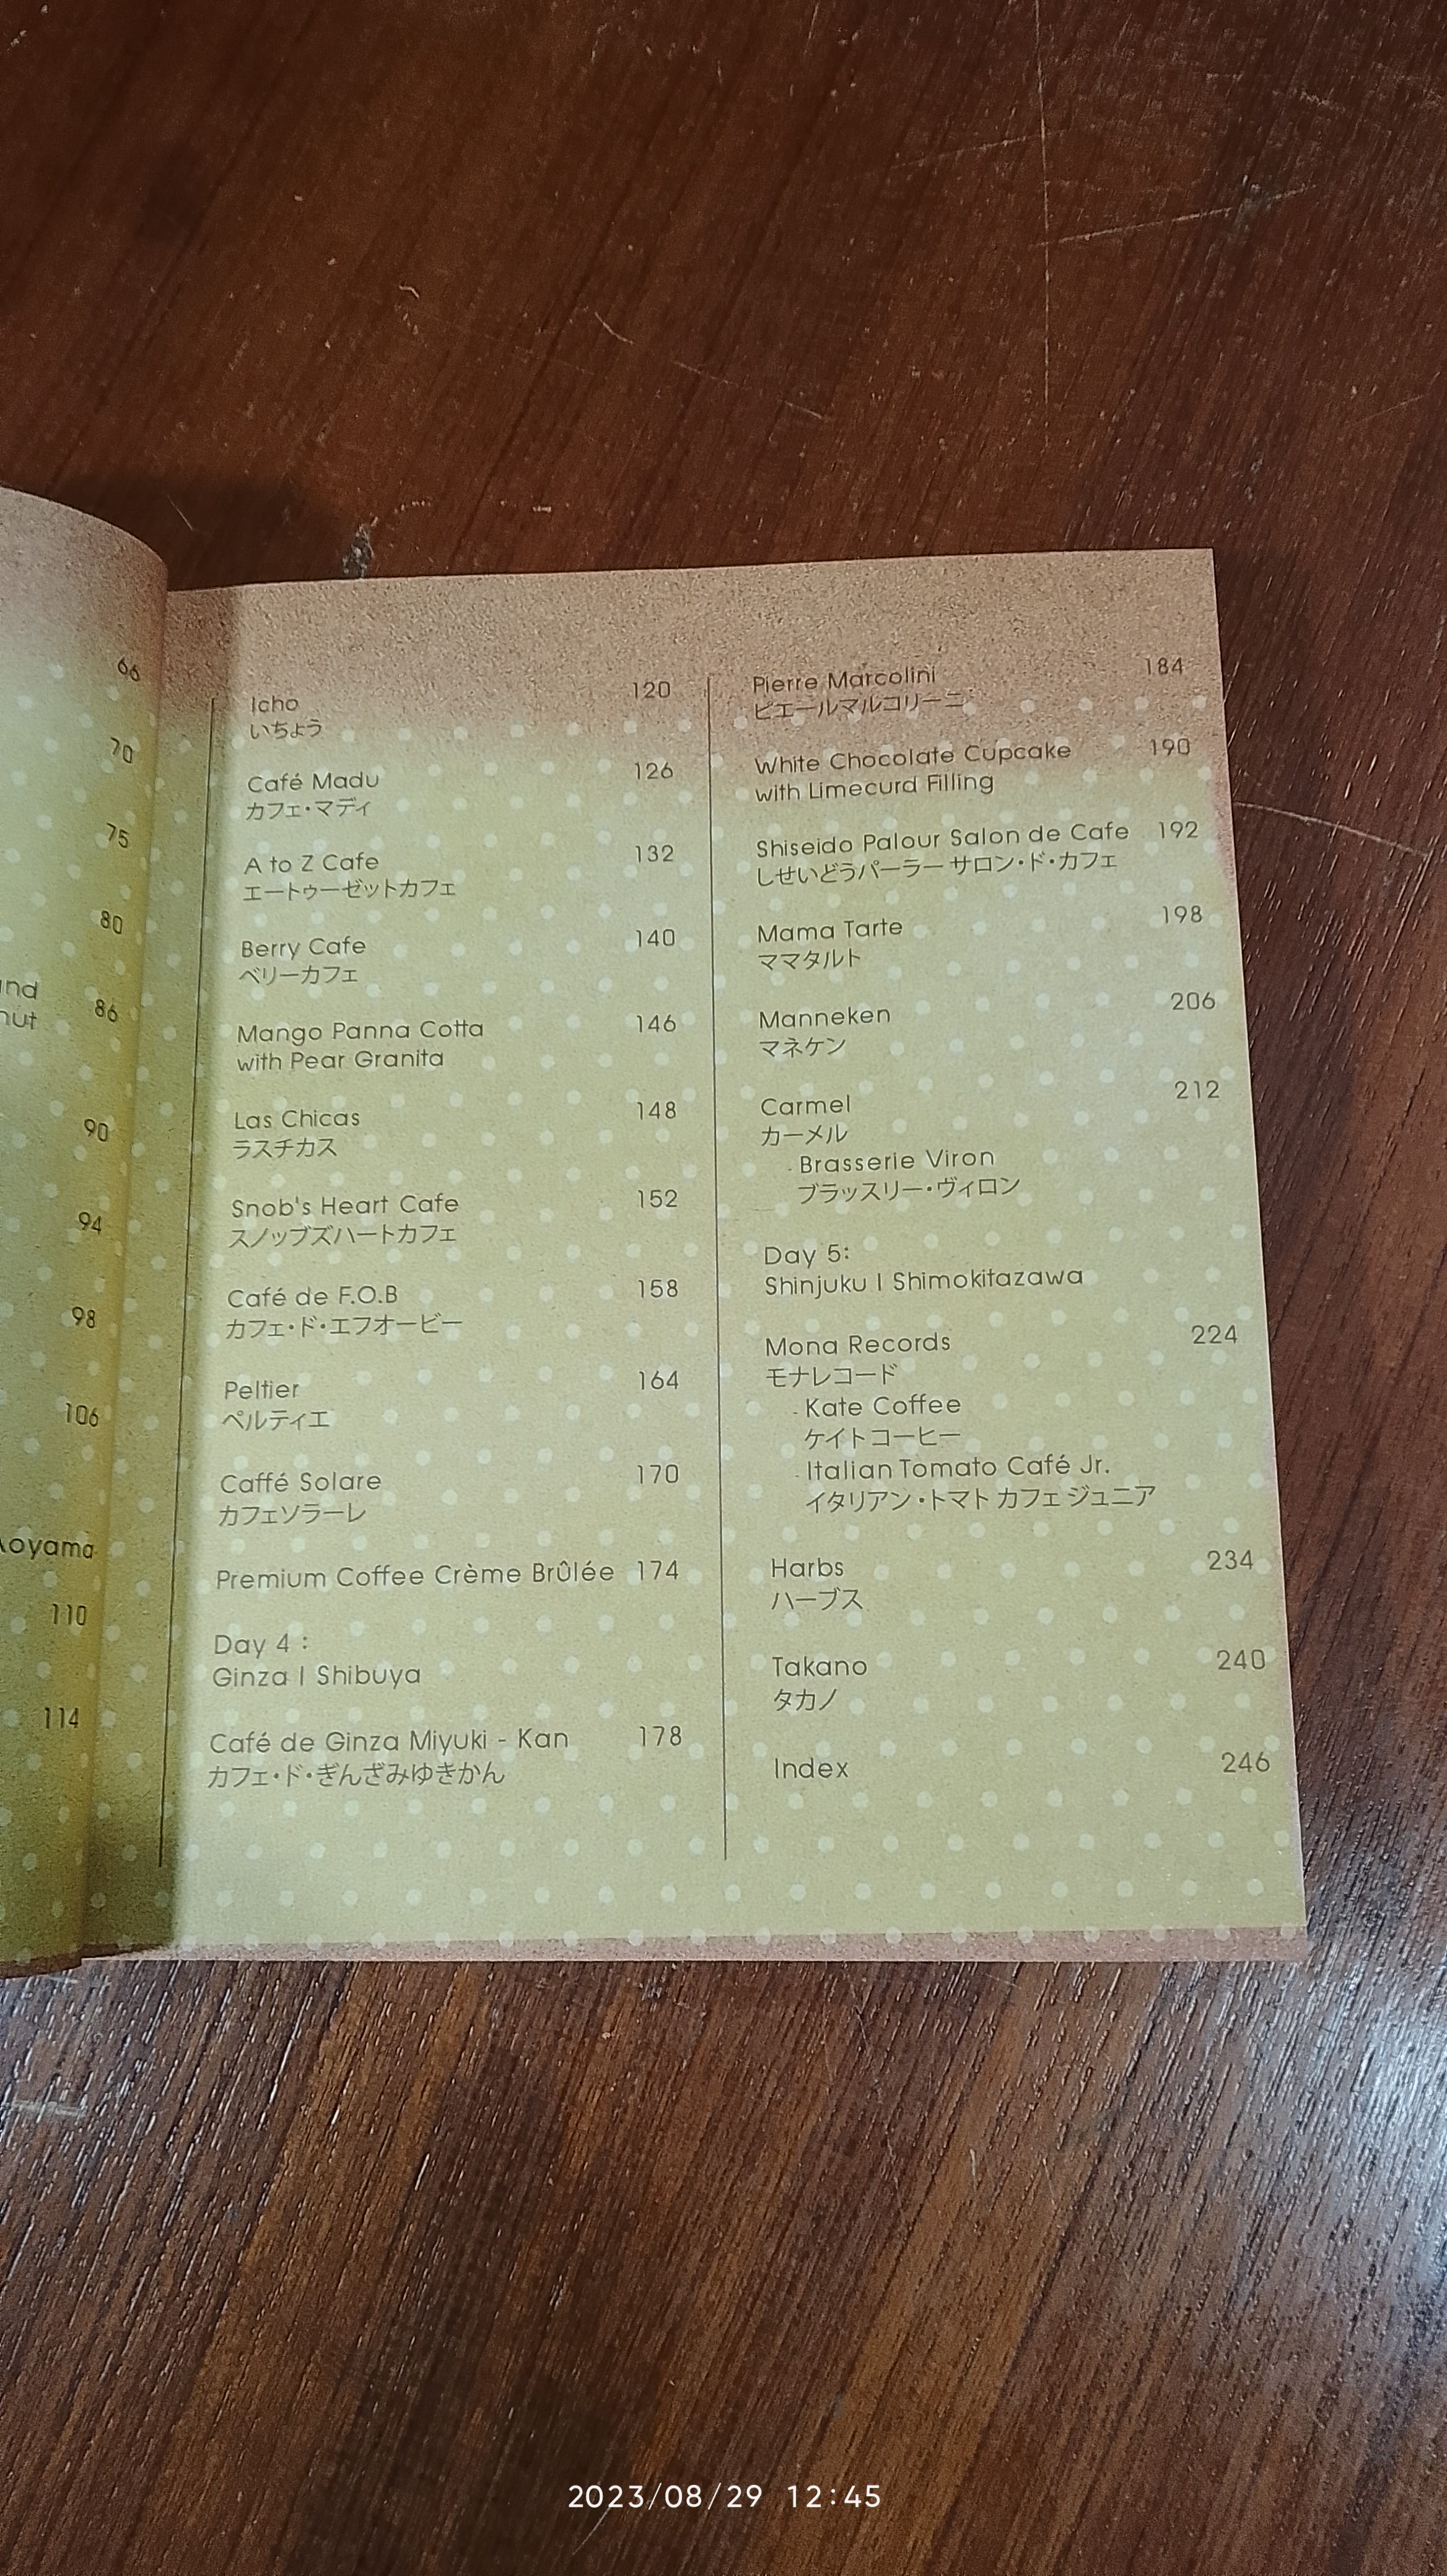 66
70
75
80
nd
nut
86
90
94
98
106
Aoyama
110
114
Icho 120
いちょう
Café Madu 126
カフェ・マディ
A to Z Cafe 132
エートゥーゼットカフェ
Berry Cafe 140
ベリーカフェ
Mango Panna Cotta 146
with Pear Granita
Las Chicas 148
ラスチカス
Snob's Heart Cafe 152
スノッブズハートカフェ
Café de F.O.B 158
カフェ・ド・エフオービー
Peltier 164
ペルティエ
Caffé Solare 170
カフェソラーレ
Premium Coffee Crème Brûlée 174
Day 4 :
Ginza | Shibuya
Café de Ginza Miyuki - Kan 178
カフェ・ド・ぎんざみゆきかん
Pierre Marcolini 184
ピエールマルコリーニ
White Chocolate Cupcake 190
with Limecurd Filling
Shiseido Palour Salon de Cafe 192
しせいどうパーラー サロン・ド・カフェ
Mama Tarte 198
ママタルト
Manneken 206
マネケン
Carmel 212
カーメル
- Brasserie Viron
ブラッスリー・ヴィロン
Day 5:
Shinjuku | Shimokitazawa
Mona Records 224
モナレコード
- Kate Coffee
ケイトコーヒー
- Italian Tomato Café Jr.
イタリアン・トマト カフェ ジュニア
Harbs 234
ハーブス
Takano 240
タカノ
Index 246
2023/08/29 12:45